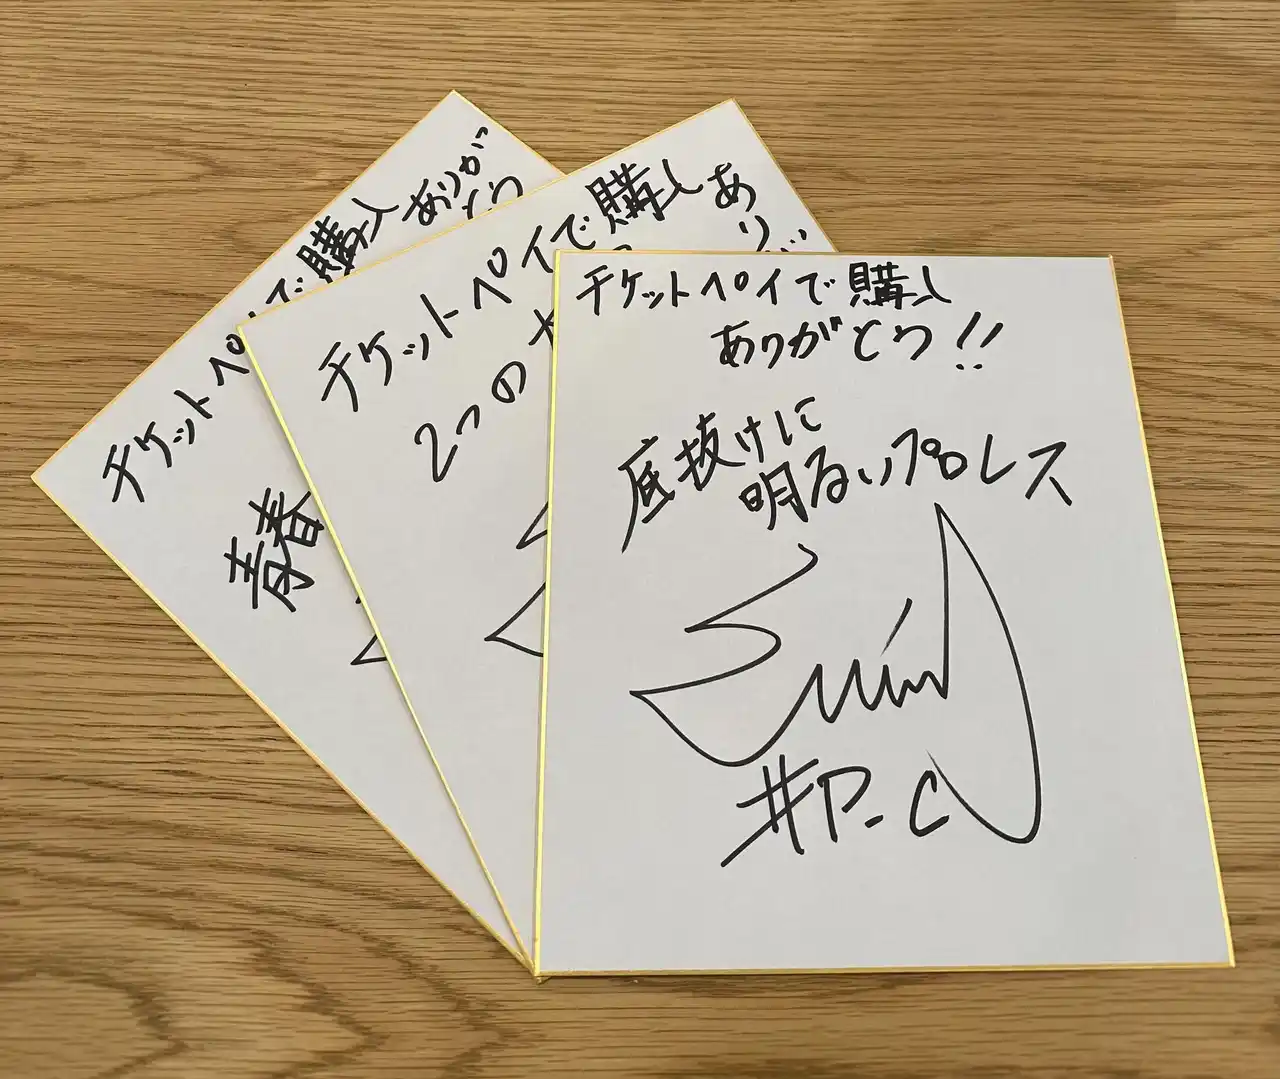 チケットペイで購入
ありがとう!!
底抜けに
明るいプロレス
#P.C
チケットペイで購入
あり
2つの
チケットペイで購入
ありが
とう
青春